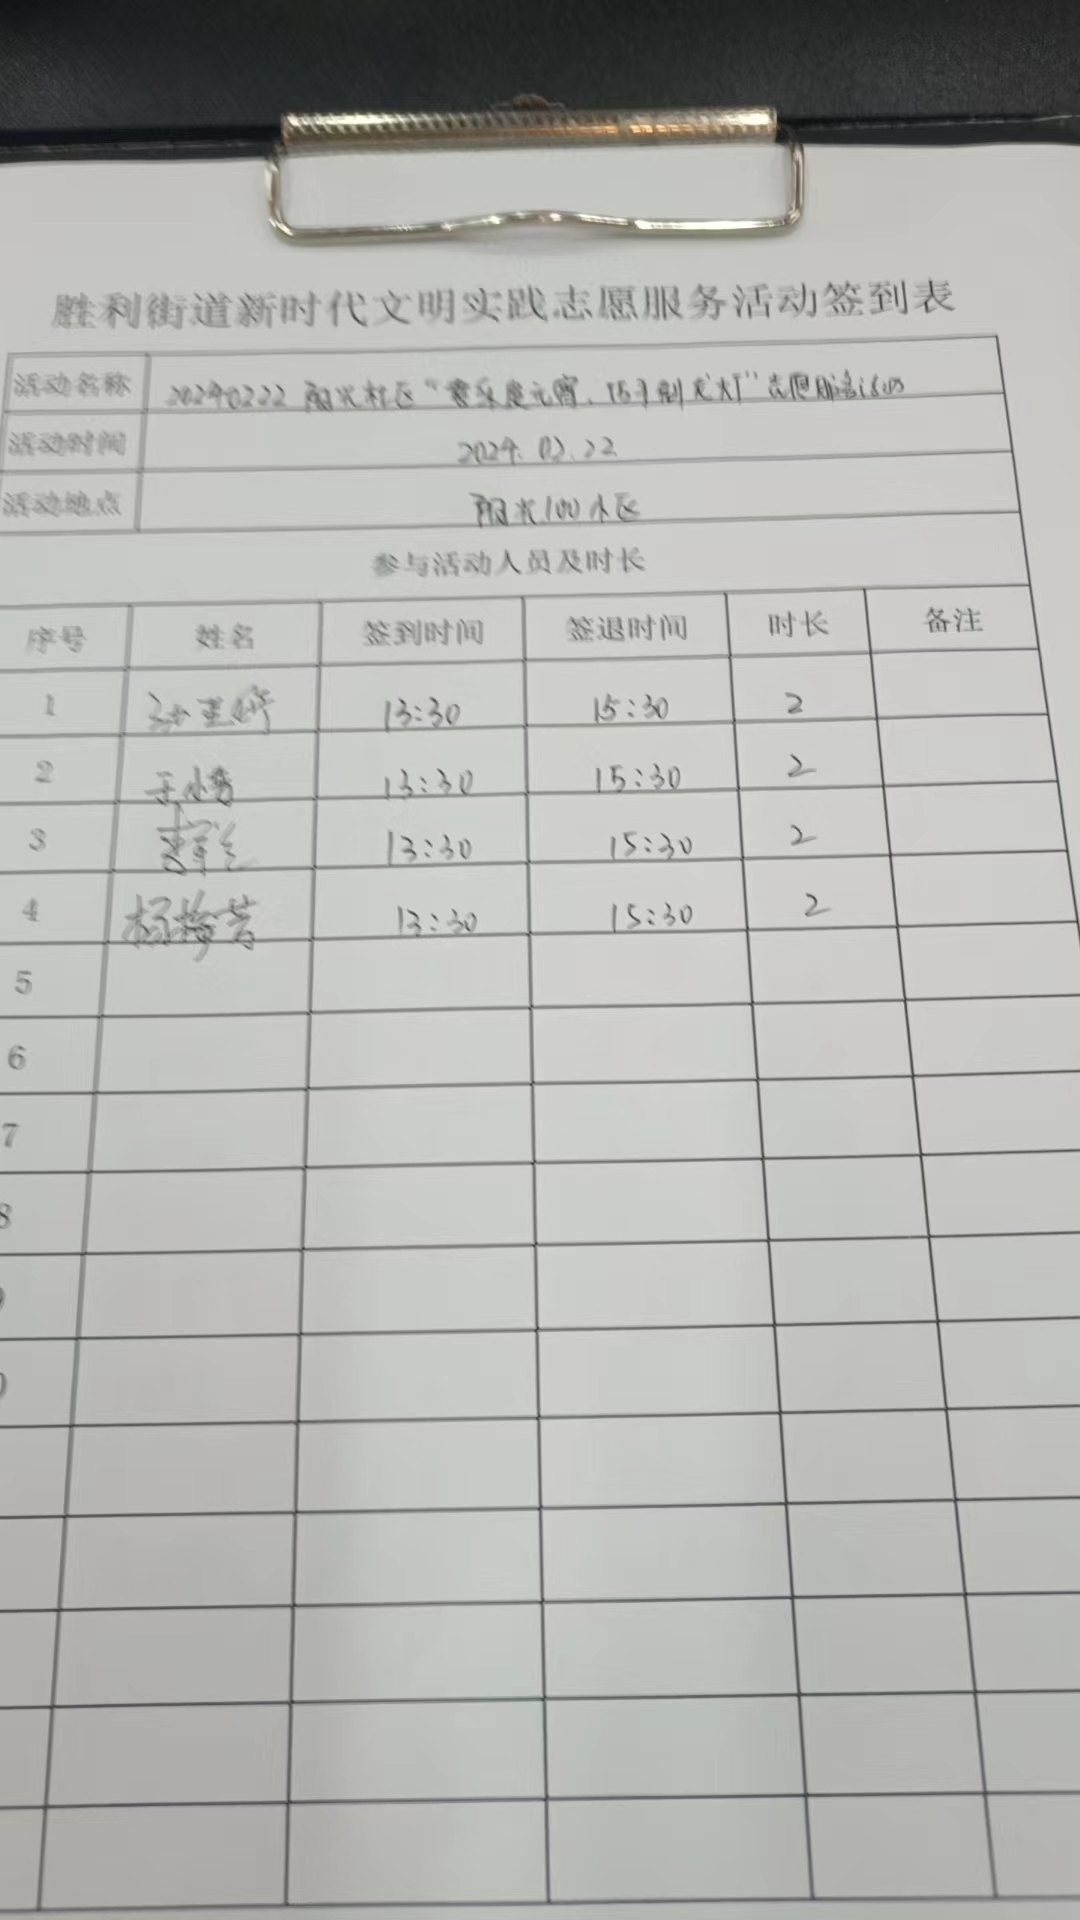 胜利街道新时代文明实践志愿服务活动签到表
活动名称 20240222 阳光社区“喜乐度元宵、巧手制花灯”志愿服务活动
活动时间 2024.02.22
活动地点 阳光100小区
参与活动人员及时长
序号 姓名 签到时间 签退时间 时长 备注
1 13:30 15:30 2
2 13:30 15:30 2
3 13:30 15:30 2
4 杨梅芳 13:30 15:30 2
5
6
7
8